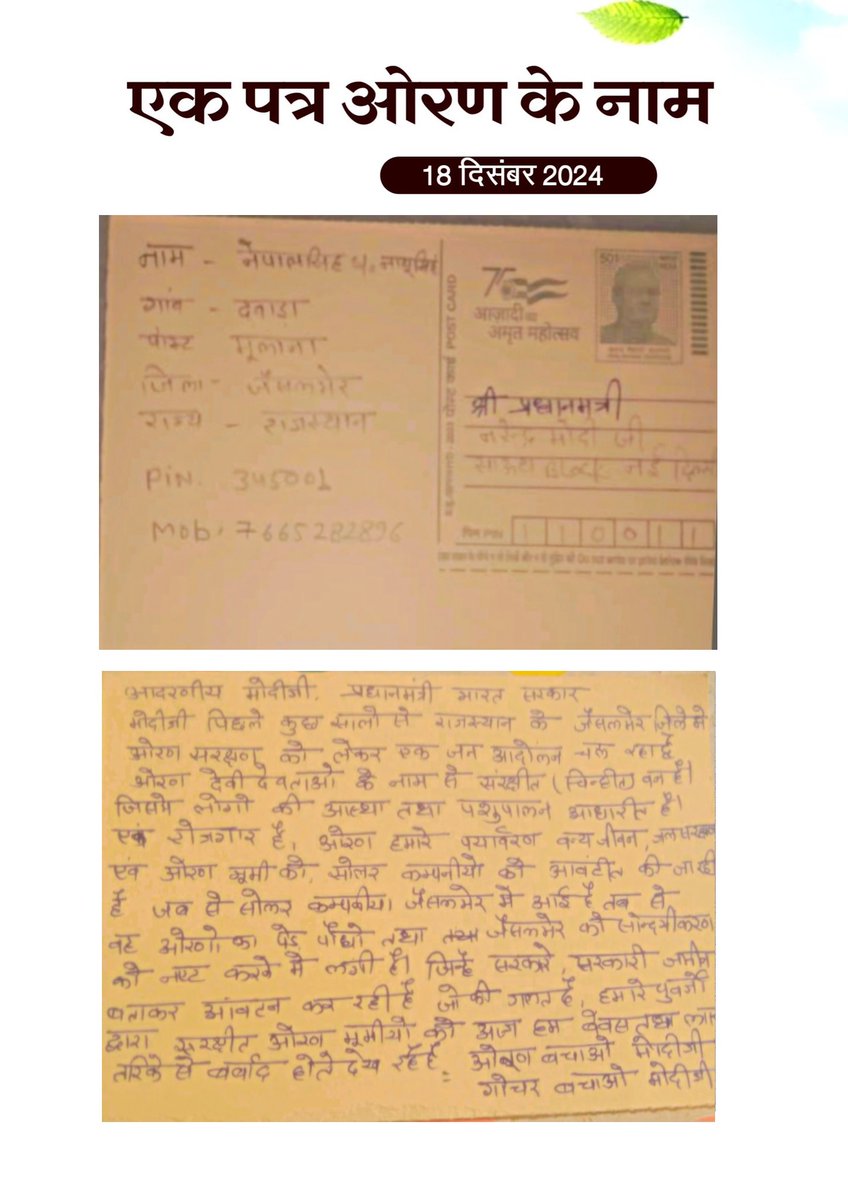 एक पत्र ओरण के नाम
18 दिसंबर 2024
नाम - नेपालसिंह
गांव - दवाड़ा
पोस्ट मूलाना
जिला - जैसलमेर
राज्य - राजस्थान
PIN. 345001
Mob. 7665282896
POST CARD पोस्ट कार्ड
75
आज़ादी का
अमृत महोत्सव
श्री प्रधानमंत्री
नरेन्द्र मोदी जी
साऊथ Block नई
पिन PIN 110011
आदरणीय मोदीजी. प्रधानमंत्री भारत सरकार
मोदीजी पिछले कुछ सालो से राजस्थान के जैसलमेर जिले मे
ओरण सरक्षण को लेकर एक जन आदोलन चल रहा है
ओरण देवी देवताओ के नाम से संरक्षीत (चिन्हीत) वन है।
जिसमे लोगो की आस्था तथा पशुपालन आधारीत है।
एवं रोजगार है, ओरण हमारे पयार्वरण वन्य जीवन,
एवं ओरण भूमी को, सोलर कम्पनीयो को आवंटीत की जा रही
है जब से सोलर कम्पनीया जैसलमेर मे आई है तब से
वह ओरणो का पेड़ पौधो तथा तथा जैसलमेर की सोन्द्रीकरण
को नष्ट करने मे लगी है। जिन्हे सरकारे, सरकारी जमीन
बताकर आंवटन कर रही है जो की गलत है, हमारे पुवर्जो
द्वारा सुरक्षीत ओरण भूमीयो को आज हम बेवस तथा
तरिके से बर्बाद होते देख रहे है = ओरण बचाओ मोदीजी
गोचर बचाओ मोदीजी